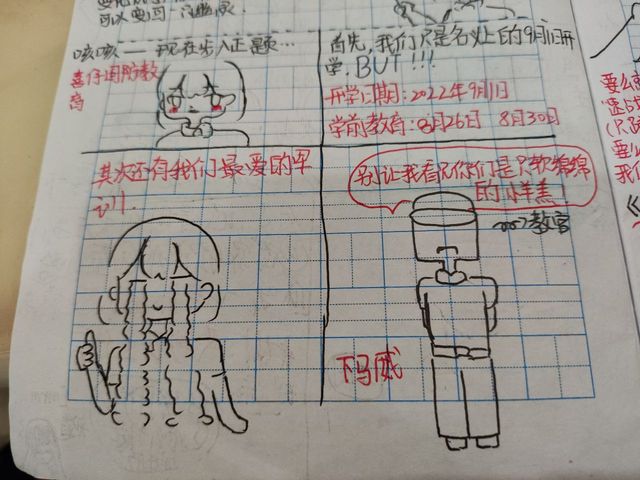 可以
咳咳——现在步入正题…
喜仔国防教
育
首先,我们只是名义上的9月1日开
学,BUT!!!
开学日期:2022年9月1日
学前教育:8月26日 8月30日
其次还有我们最爱的军
训!
别让我看见你们是只软绵绵
的小羊羔!
教官
下马威
要么